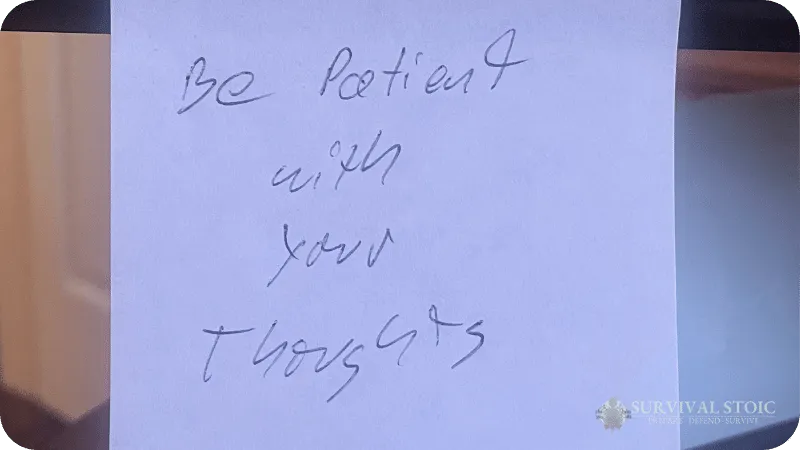 Be Patient
with
your
Thoughts
SURVIVAL STOIC
PREPARE · DEFEND · SURVIVE